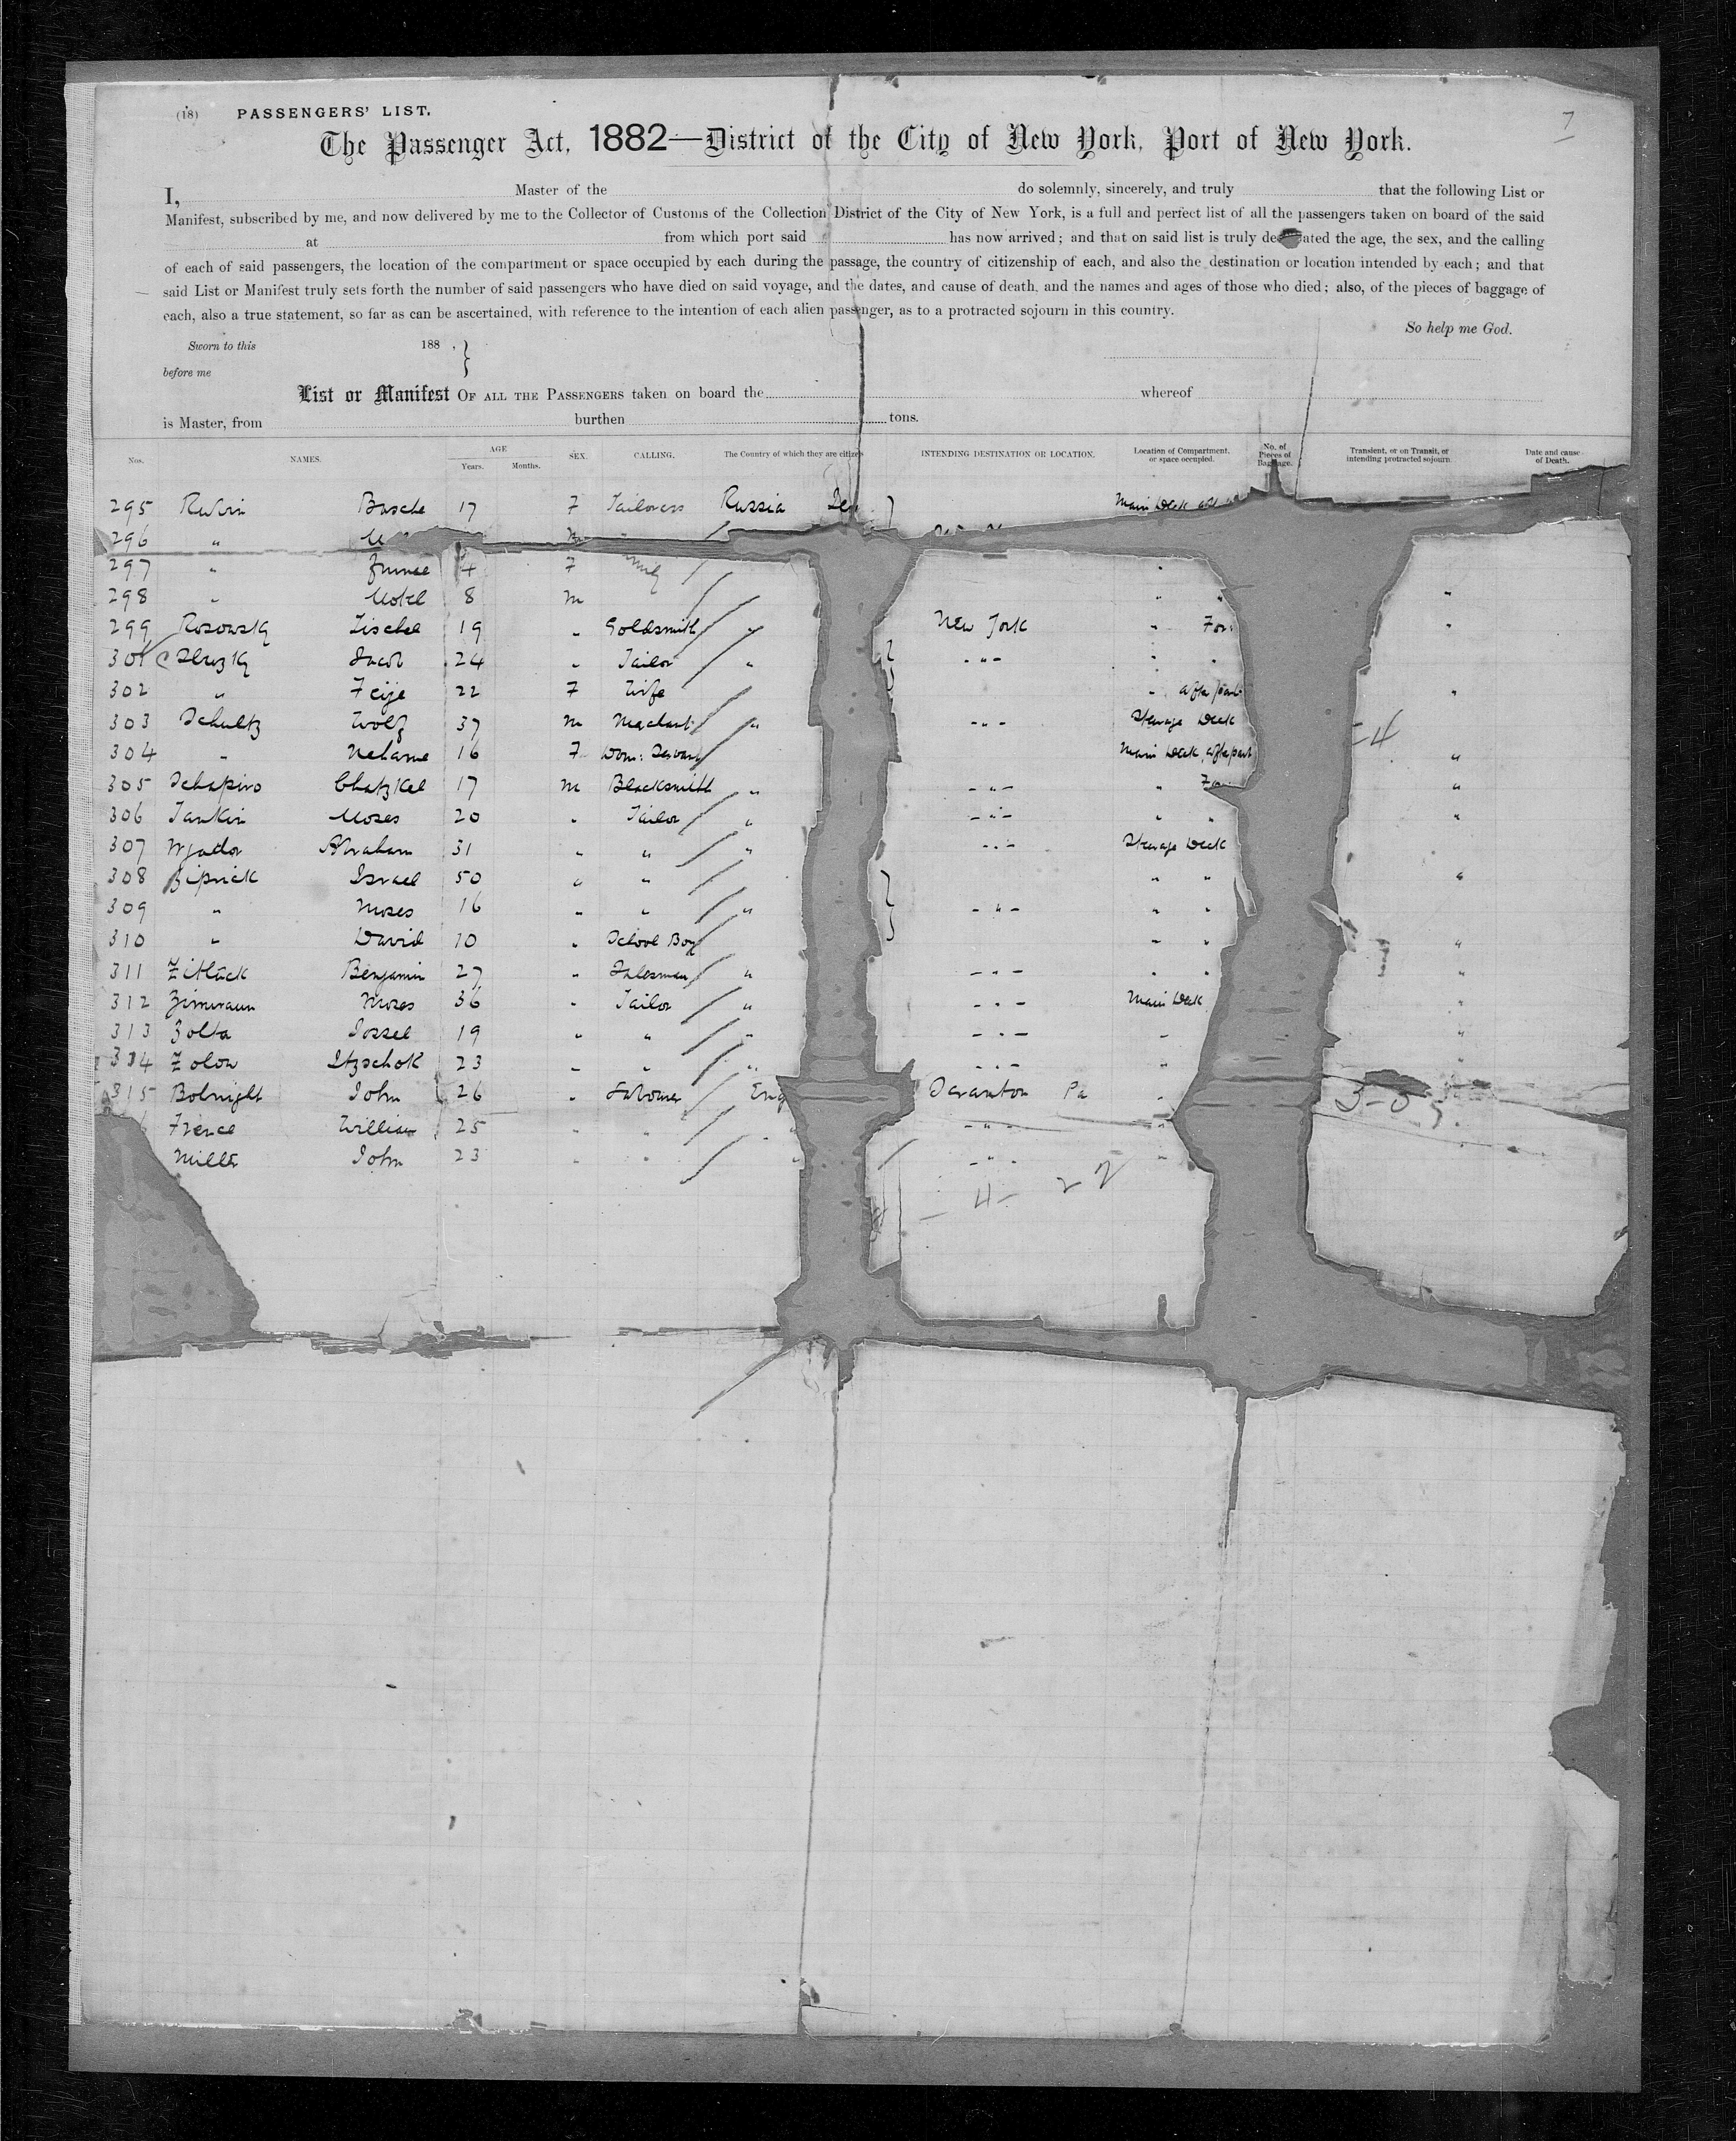 (18) PASSENGERS' LIST. 7
The Passenger Act, 1882—District of the City of New York, Port of New York.
I, Master of the do solemnly, sincerely, and truly that the following List or
Manifest, subscribed by me, and now delivered by me to the Collector of Customs of the Collection District of the City of New York, is a full and perfect list of all the passengers taken on board of the said
at from which port said has now arrived; and that on said list is truly de ated the age, the sex, and the calling
of each of said passengers, the location of the compartment or space occupied by each during the passage, the country of citizenship of each, and also the destination or location intended by each; and that
said List or Manifest truly sets forth the number of said passengers who have died on said voyage, and the dates, and cause of death, and the names and ages of those who died; also, of the pieces of baggage of
each, also a true statement, so far as can be ascertained, with reference to the intention of each alien passenger, as to a protracted sojourn in this country.
So help me God.
Sworn to this 188 ,
before me
List or Manifest OF ALL THE PASSENGERS taken on board the whereof
is Master, from burthen tons.
Nos. NAMES. AGE Years. Months. SEX. CALLING. The Country of which they are citizens INTENDING DESTINATION OR LOCATION. Location of Compartment, or space occupied. No. of Pieces of Baggage. Transient, or on Transit, or intending protracted sojourn. Date and cause of Death.
295 Rubin Basche 17 F Tailoress Russia Main Deck
296 "
297 " 4 F
298 " Motel 8 m " "
299 Rosowsky Fischel 19 " Goldsmith " New York " "
301 Jacob 24 " Tailor " - " - "
302 " Feije 22 F Wife " aft part "
303 Schultz Wolf 37 m " - " - Steerage Deck -4
304 " Nehame 16 F Dom: Servant Main Deck aft part "
305 Schapiro Chatzkel 17 m Blacksmith " - " - " "
306 Jankin Moses 20 " Tailor " - " - " " "
307 Abraham 31 " " " - " - Steerage Deck
308 Israel 50 " " " " "
309 " Moses 16 " " " - " - " "
310 " David 10 " School Boy " " "
311 Benjamin 27 " Salesman " - " - " " "
312 Moses 36 " Tailor " - " - Main Deck "
313 Zolta Jossel 19 " " " - " - " "
314 Zolow Itzschok 23 " " " - " - " "
315 Bolnight John 26 " Labourer Eng Scranton Pa "
William 25 " " " - " - "
Miller John 23 " " " - " - "